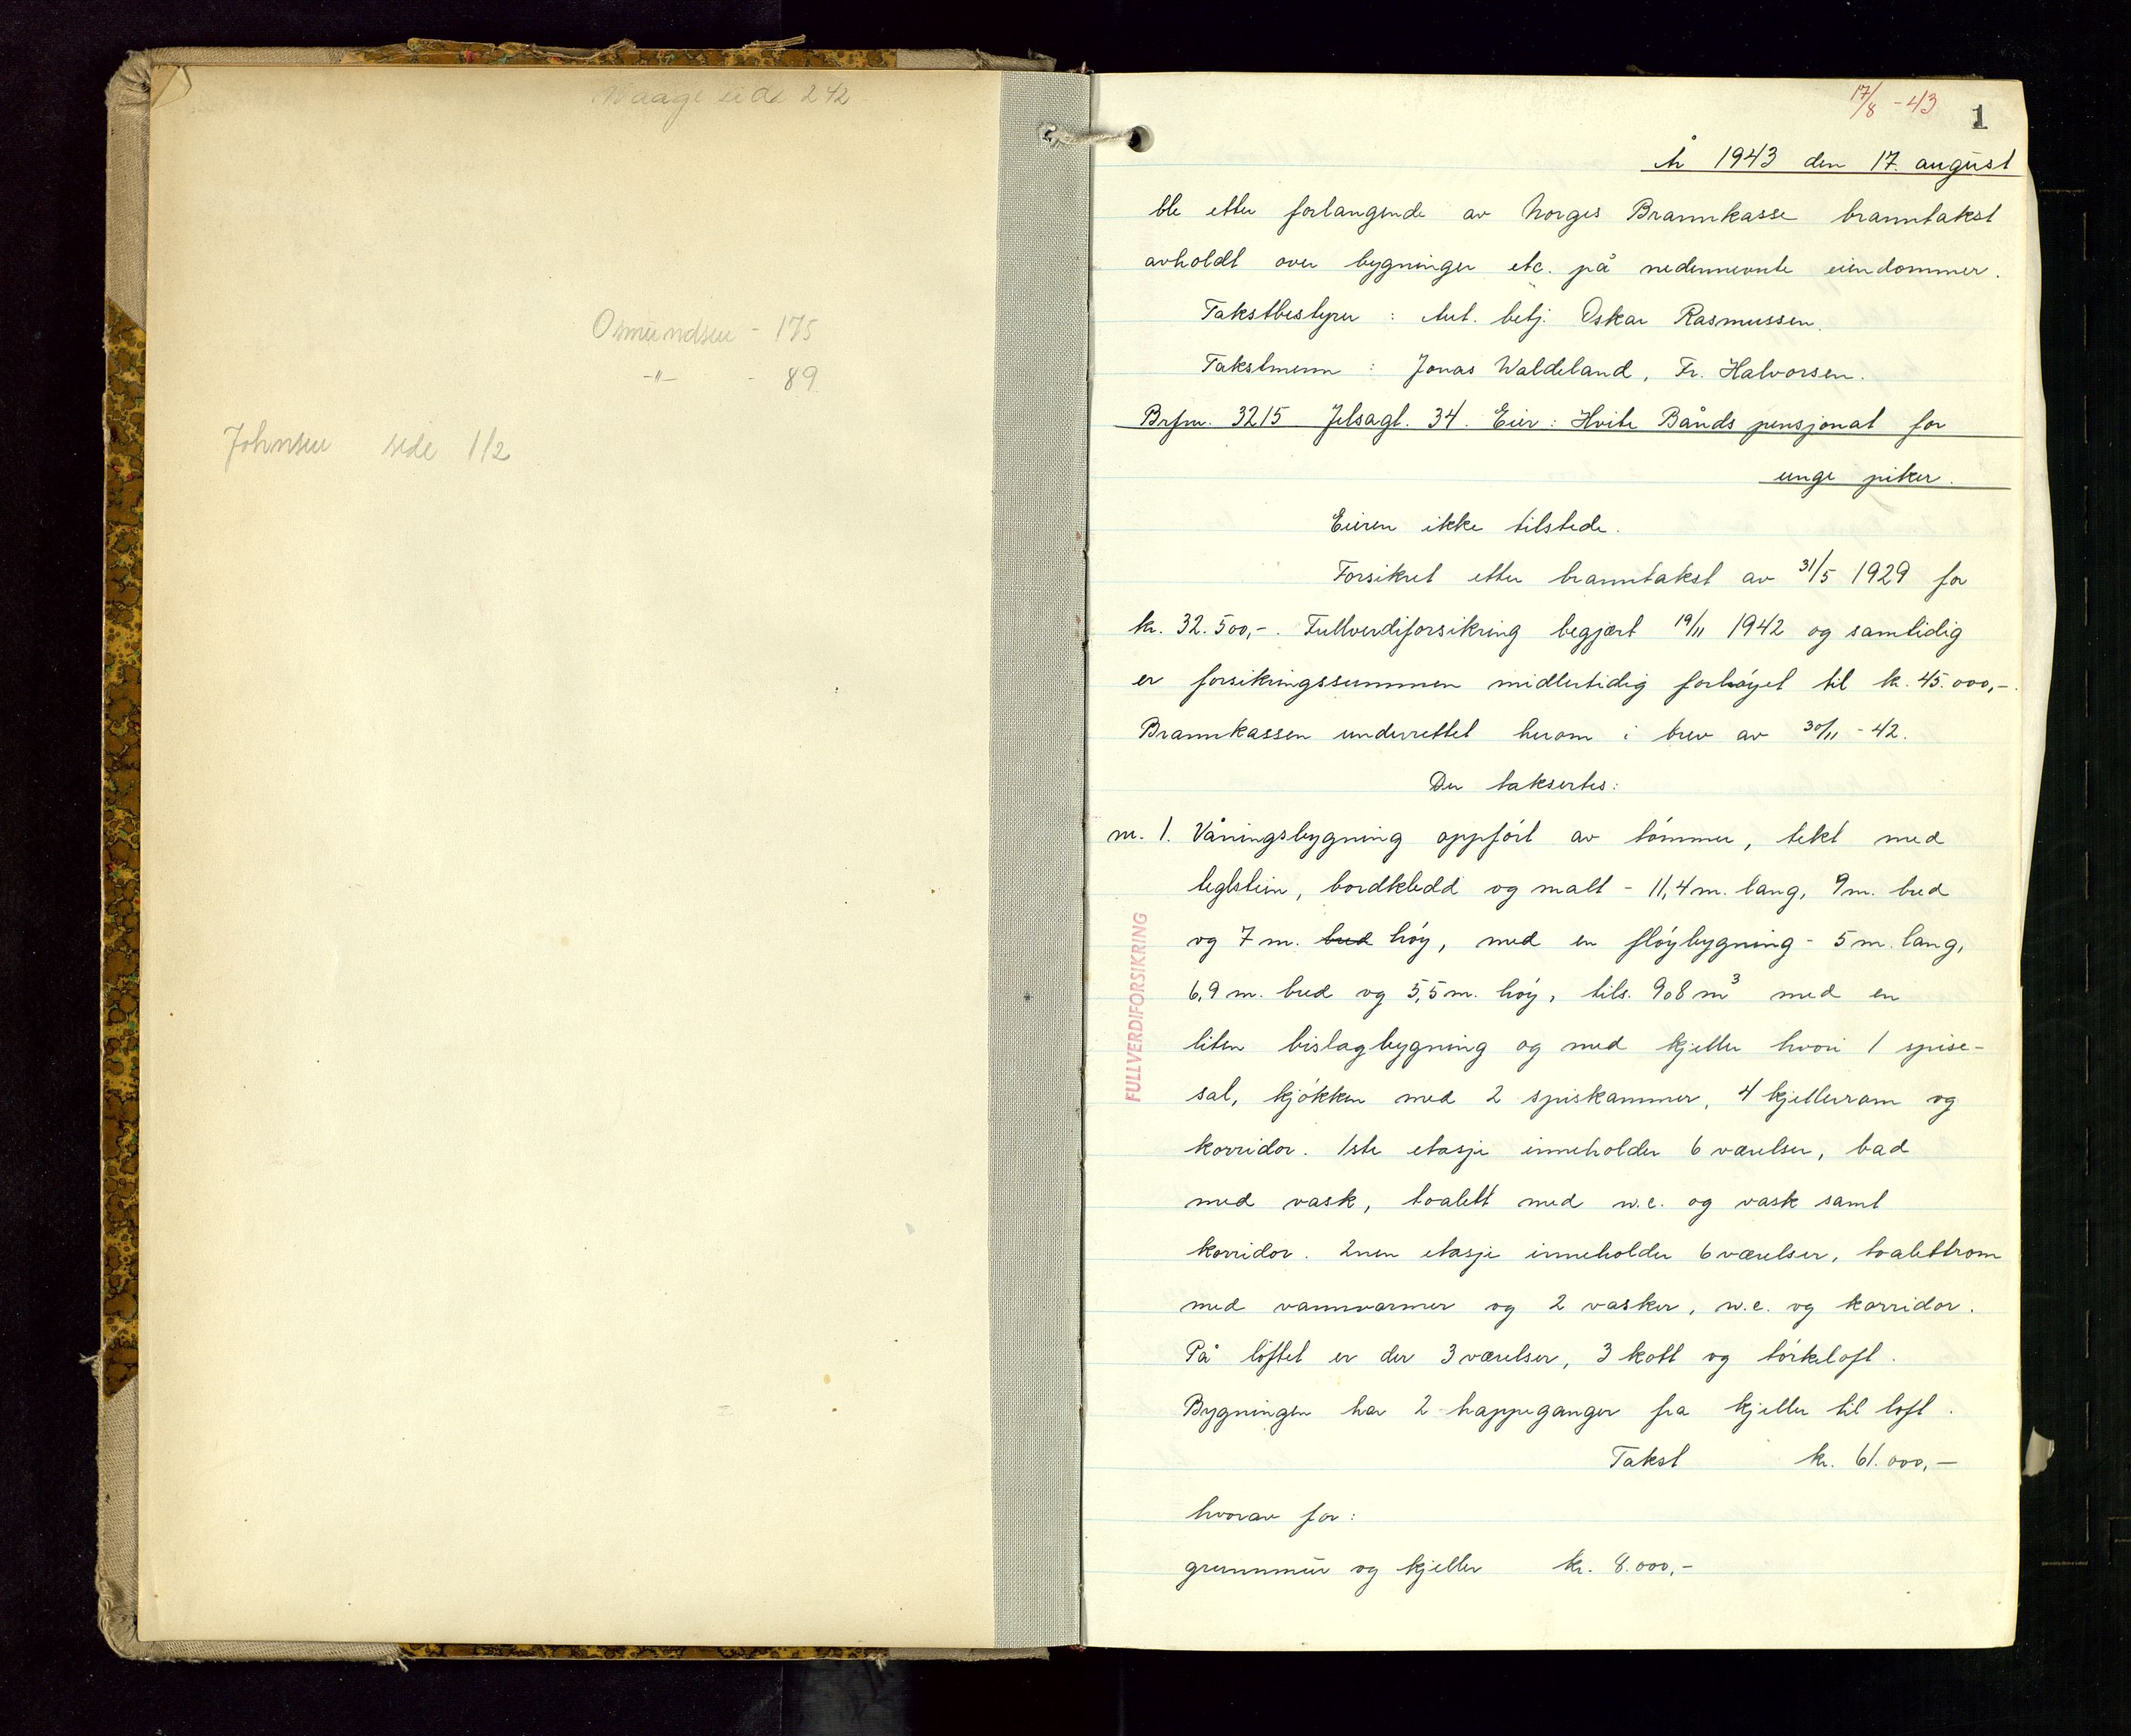 Waage side 242
Osmundsen - 175
-"- - 89
Johnsen side 112
17/8 - 43
1
År 1943 den 17. august
ble etter forlangende av Norges Brannkasse branntakst
avholdt over bygninger etc. på nedennevnte eiendommer.
Takstbestyrer : Aut. betj. Oskar Rasmussen.
Takstmenn : Jonas Waldeland, Fr. Halvorsen.
Brfnr. 3215 Jelsagt. 34. Eier: Hvite Bånds pensjonat for
unge piker.
Eieren ikke tilstede.
Forsikret etter branntakst av 31/5 1929 for
kr. 32.500,-. Fullverdiforsikring begjært 19/11 1942 og samtidig
er forsikringssummen midlertidig forhöyet til kr. 45.000,-.
Brannkassen underrettet herom i brev av 30/11 - 42.
Der taksertes:
nr. 1. Våningsbygning oppfört av tömmer, tekt med
teglstein, bordkledd og malt - 11,4 m. lang, 9 m. bred
og 7 m. bred höy, med en flöybygning - 5 m. lang,
6,9 m. bred og 5,5 m. höy, tils. 908 m³ med en
liten bislagbygning og med kjeller hvori 1 spise-
sal, kjökken med 2 spiskammer, 4 kjellerrom og
korridor. 1ste etasje inneholder 6 værelser, bad
med vask, toalett med w.c. og vask samt
korridor. 2nen etasje inneholder 6 værelser, toalettrom
med vannvarmer og 2 vasker, w.c. og korridor.
På loftet er der 3 værelser, 3 kott og törkeloft.
Bygningen har 2 trappeganger fra kjeller til loft.
Takst kr. 61.000,-
hvorav for:
grunnmur og kjeller kr. 8.000,-
FULLVERDIFORSIKRING